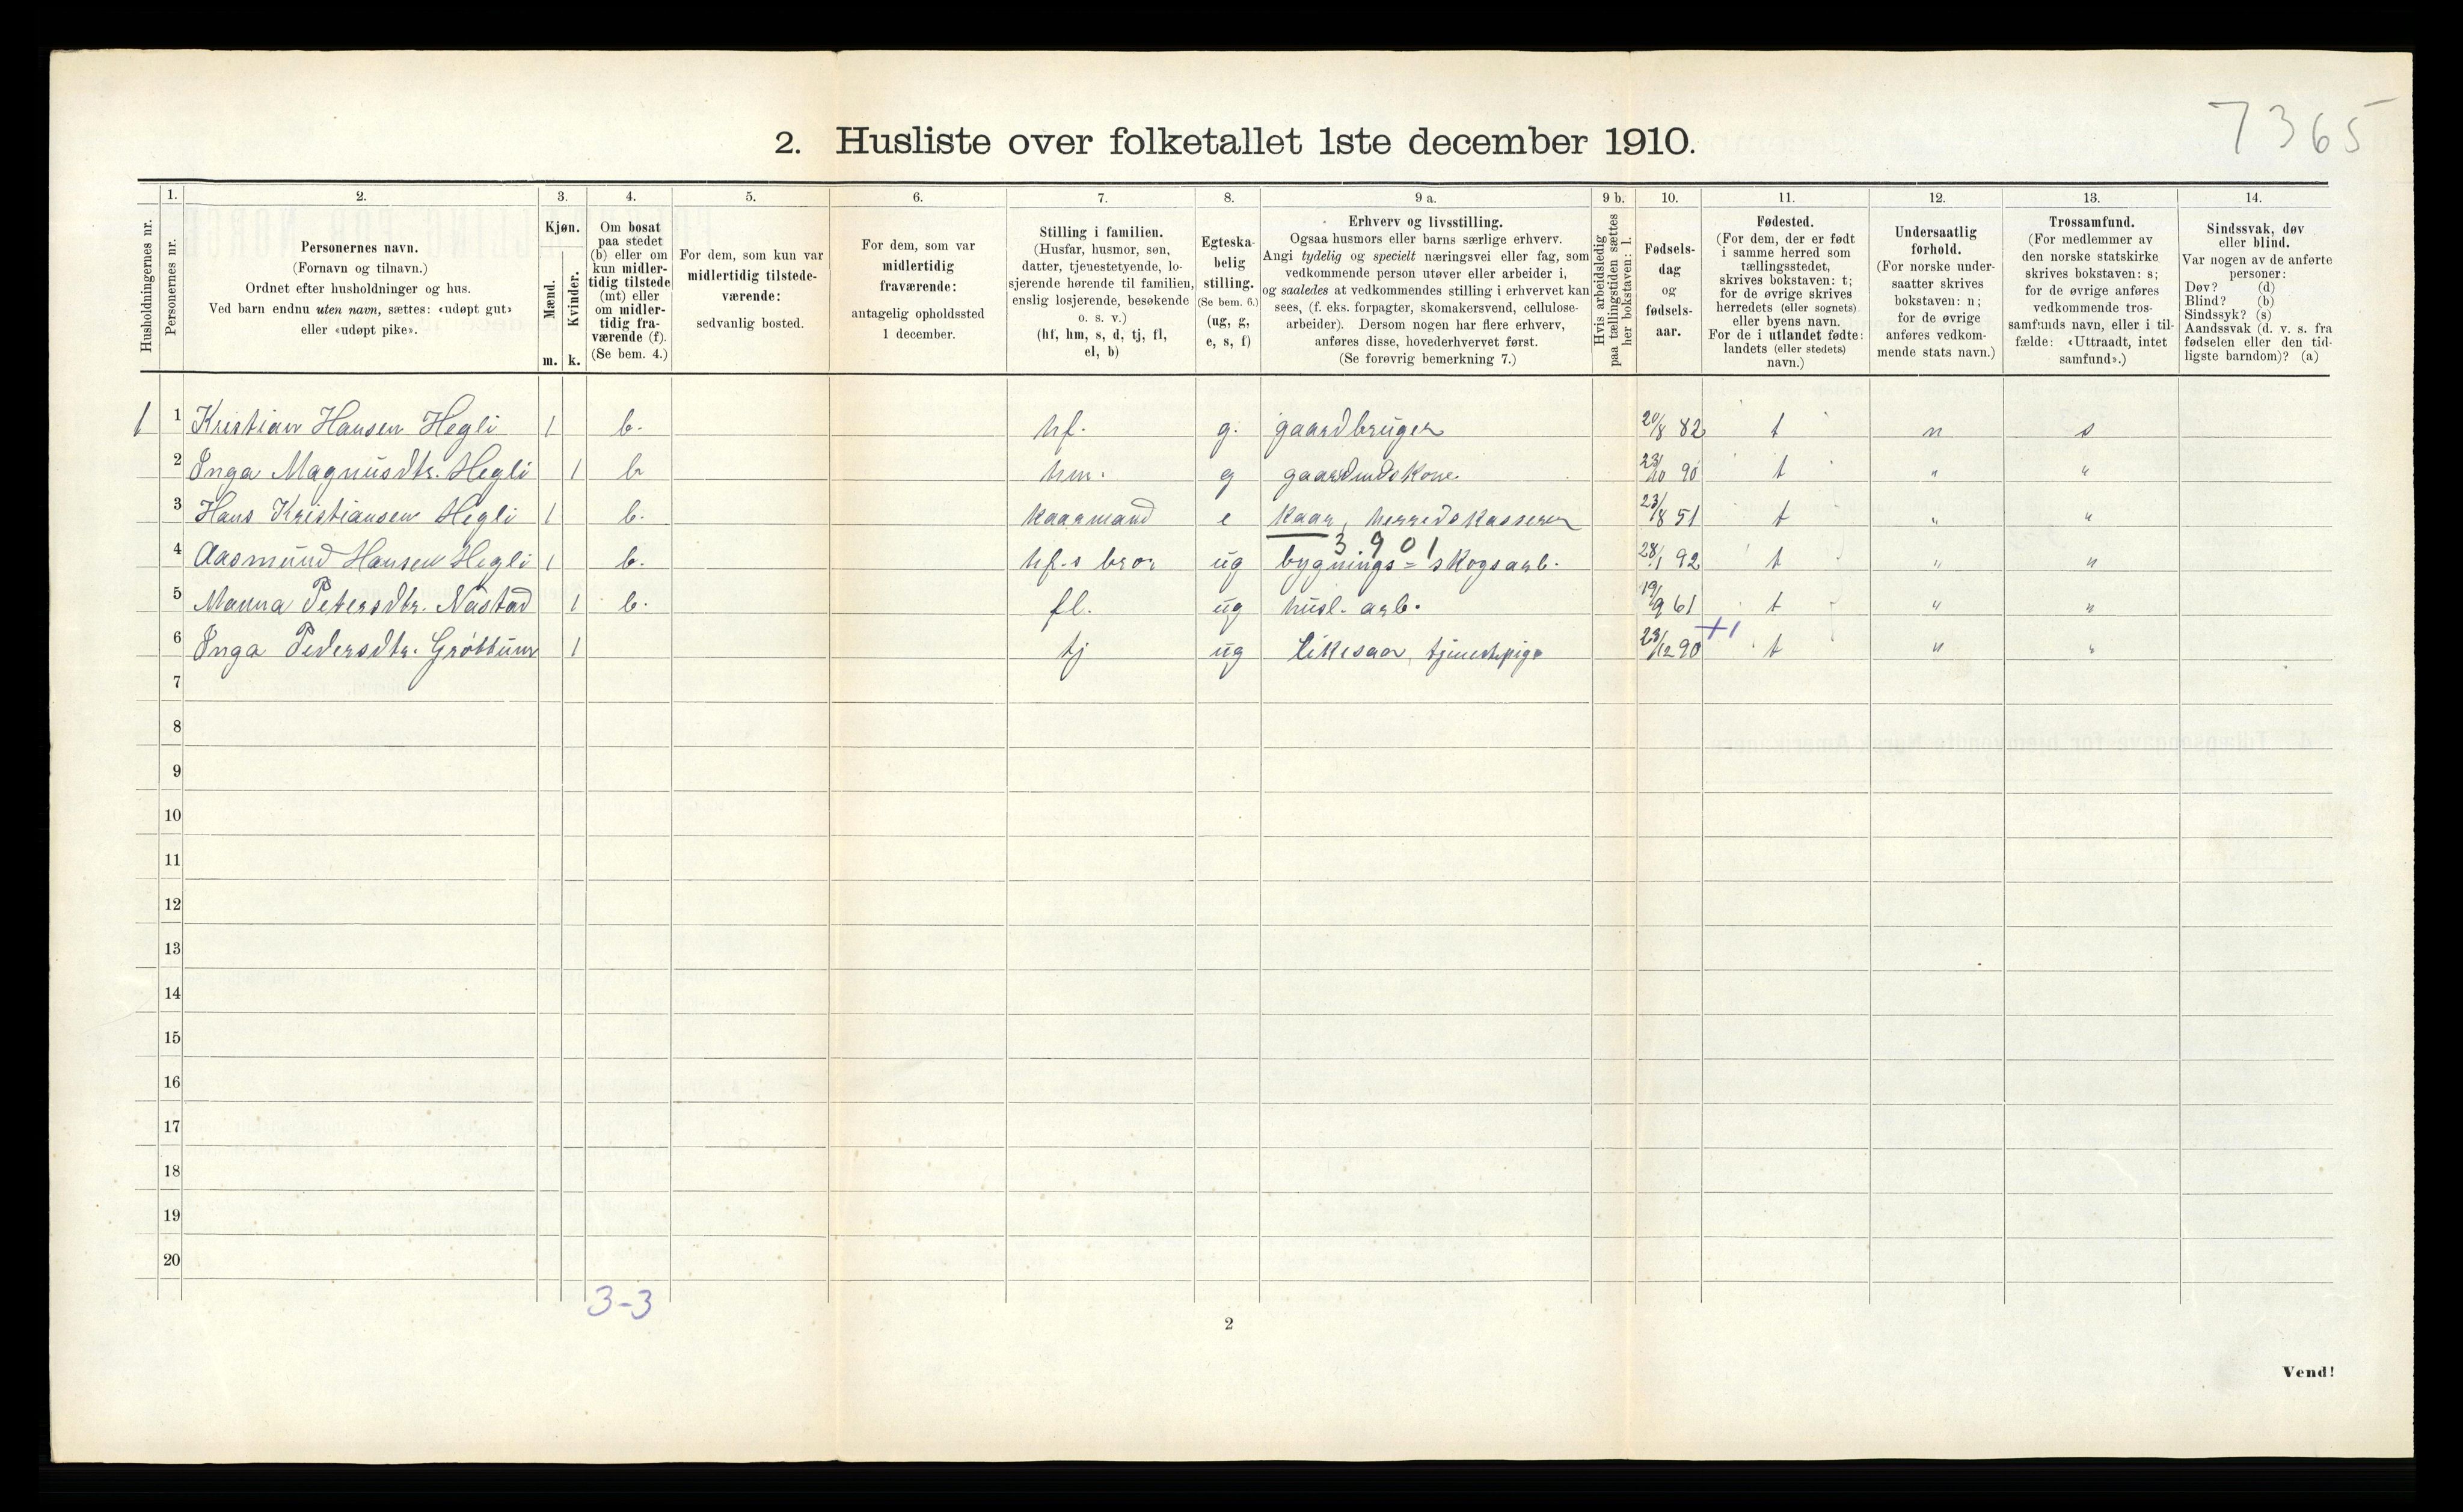 7365
2. Husliste over folketallet 1ste december 1910.
Husholdningernes nr.
1.
Personernes nr.
2.
Personernes navn.
(Fornavn og tilnavn.)
Ordnet efter husholdninger og hus.
Ved barn endnu uten navn, sættes: «udøpt gut»
eller «udøpt pike».
3.
Kjøn.
Mænd.
m.
Kvinder.
k.
4.
Om bosat
paa stedet
(b) eller om
kun midler-
tidig tilstede
(mt) eller
om midler-
tidig fra-
værende (f).
(Se bem. 4.)
5.
For dem, som kun var
midlertidig tilstede-
værende:
sedvanlig bosted.
6.
For dem, som var
midlertidig
fraværende:
antagelig opholdssted
1 december.
7.
Stilling i familien.
(Husfar, husmor, søn,
datter, tjenestetyende, lo-
sjerende hørende til familien,
enslig losjerende, besøkende
o. s. v.)
(hf, hm, s, d, tj, fl,
el, b)
8.
Egteska-
belig
stilling.
(Se bem. 6.)
(ug, g,
e, s, f)
9 a.
Erhverv og livsstilling.
Ogsaa husmors eller barns særlige erhverv.
Angi tydelig og specielt næringsvei eller fag, som
vedkommende person utøver eller arbeider i,
og saaledes at vedkommendes stilling i erhvervet kan
sees, (f. eks. forpagter, skomakersvend, cellulose-
arbeider). Dersom nogen har flere erhverv,
anføres disse, hovederhvervet først.
(Se forøvrig bemerkning 7.)
9 b.
Hvis arbeidsledig
paa tællingstiden sættes
her bokstaven: l.
10.
Fødsels-
dag
og
fødsels-
aar.
11.
Fødested.
(For dem, der er født
i samme herred som
tællingsstedet,
skrives bokstaven: t;
for de øvrige skrives
herredets (eller sognets)
eller byens navn.
For de i utlandet fødte:
landets (eller stedets)
navn.)
12.
Undersaatlig
forhold.
(For norske under-
saatter skrives
bokstaven: n;
for de øvrige
anføres vedkom-
mende stats navn.)
13.
Trossamfund.
(For medlemmer av
den norske statskirke
skrives bokstaven: s;
for de øvrige anføres
vedkommende tros-
samfunds navn, eller i til-
fælde: «Uttraadt, intet
samfund».)
14.
Sindssvak, døv
eller blind.
Var nogen av de anførte
personer:
Døv? (d)
Blind? (b)
Sindssyk? (s)
Aandssvak (d. v. s. fra
fødselen eller den tid-
ligste barndom)? (a)
1 1 Kristian Hansen Hegli 1 b. hf. g. gaardbruger 20/8 82 t n s
2 Inga Magnusdtr. Hegli 1 b hm. g gaardmdskone. 23/10 90 t " "
3 Hans Kristiansen Hegli 1 b. kaarmand e kaar, herredskasserer 23/8 51 t " "
3.901
4 Aasmund Hansen Hegli 1 b. hf.s bror ug bygnings= skogsarb. 28/1 92 t " "
5 Manna Petersdtr. Nastad 1 b. fl. ug husl. arb. 19/9 61 t " "
+1
6 Inga Pedersdtr. 1 tj ug likesaa, tjenestepige 23/12 90 t " "
7
8
9
10
11
12
13
14
15
16
17
18
19
20
3-3
2
Vend!